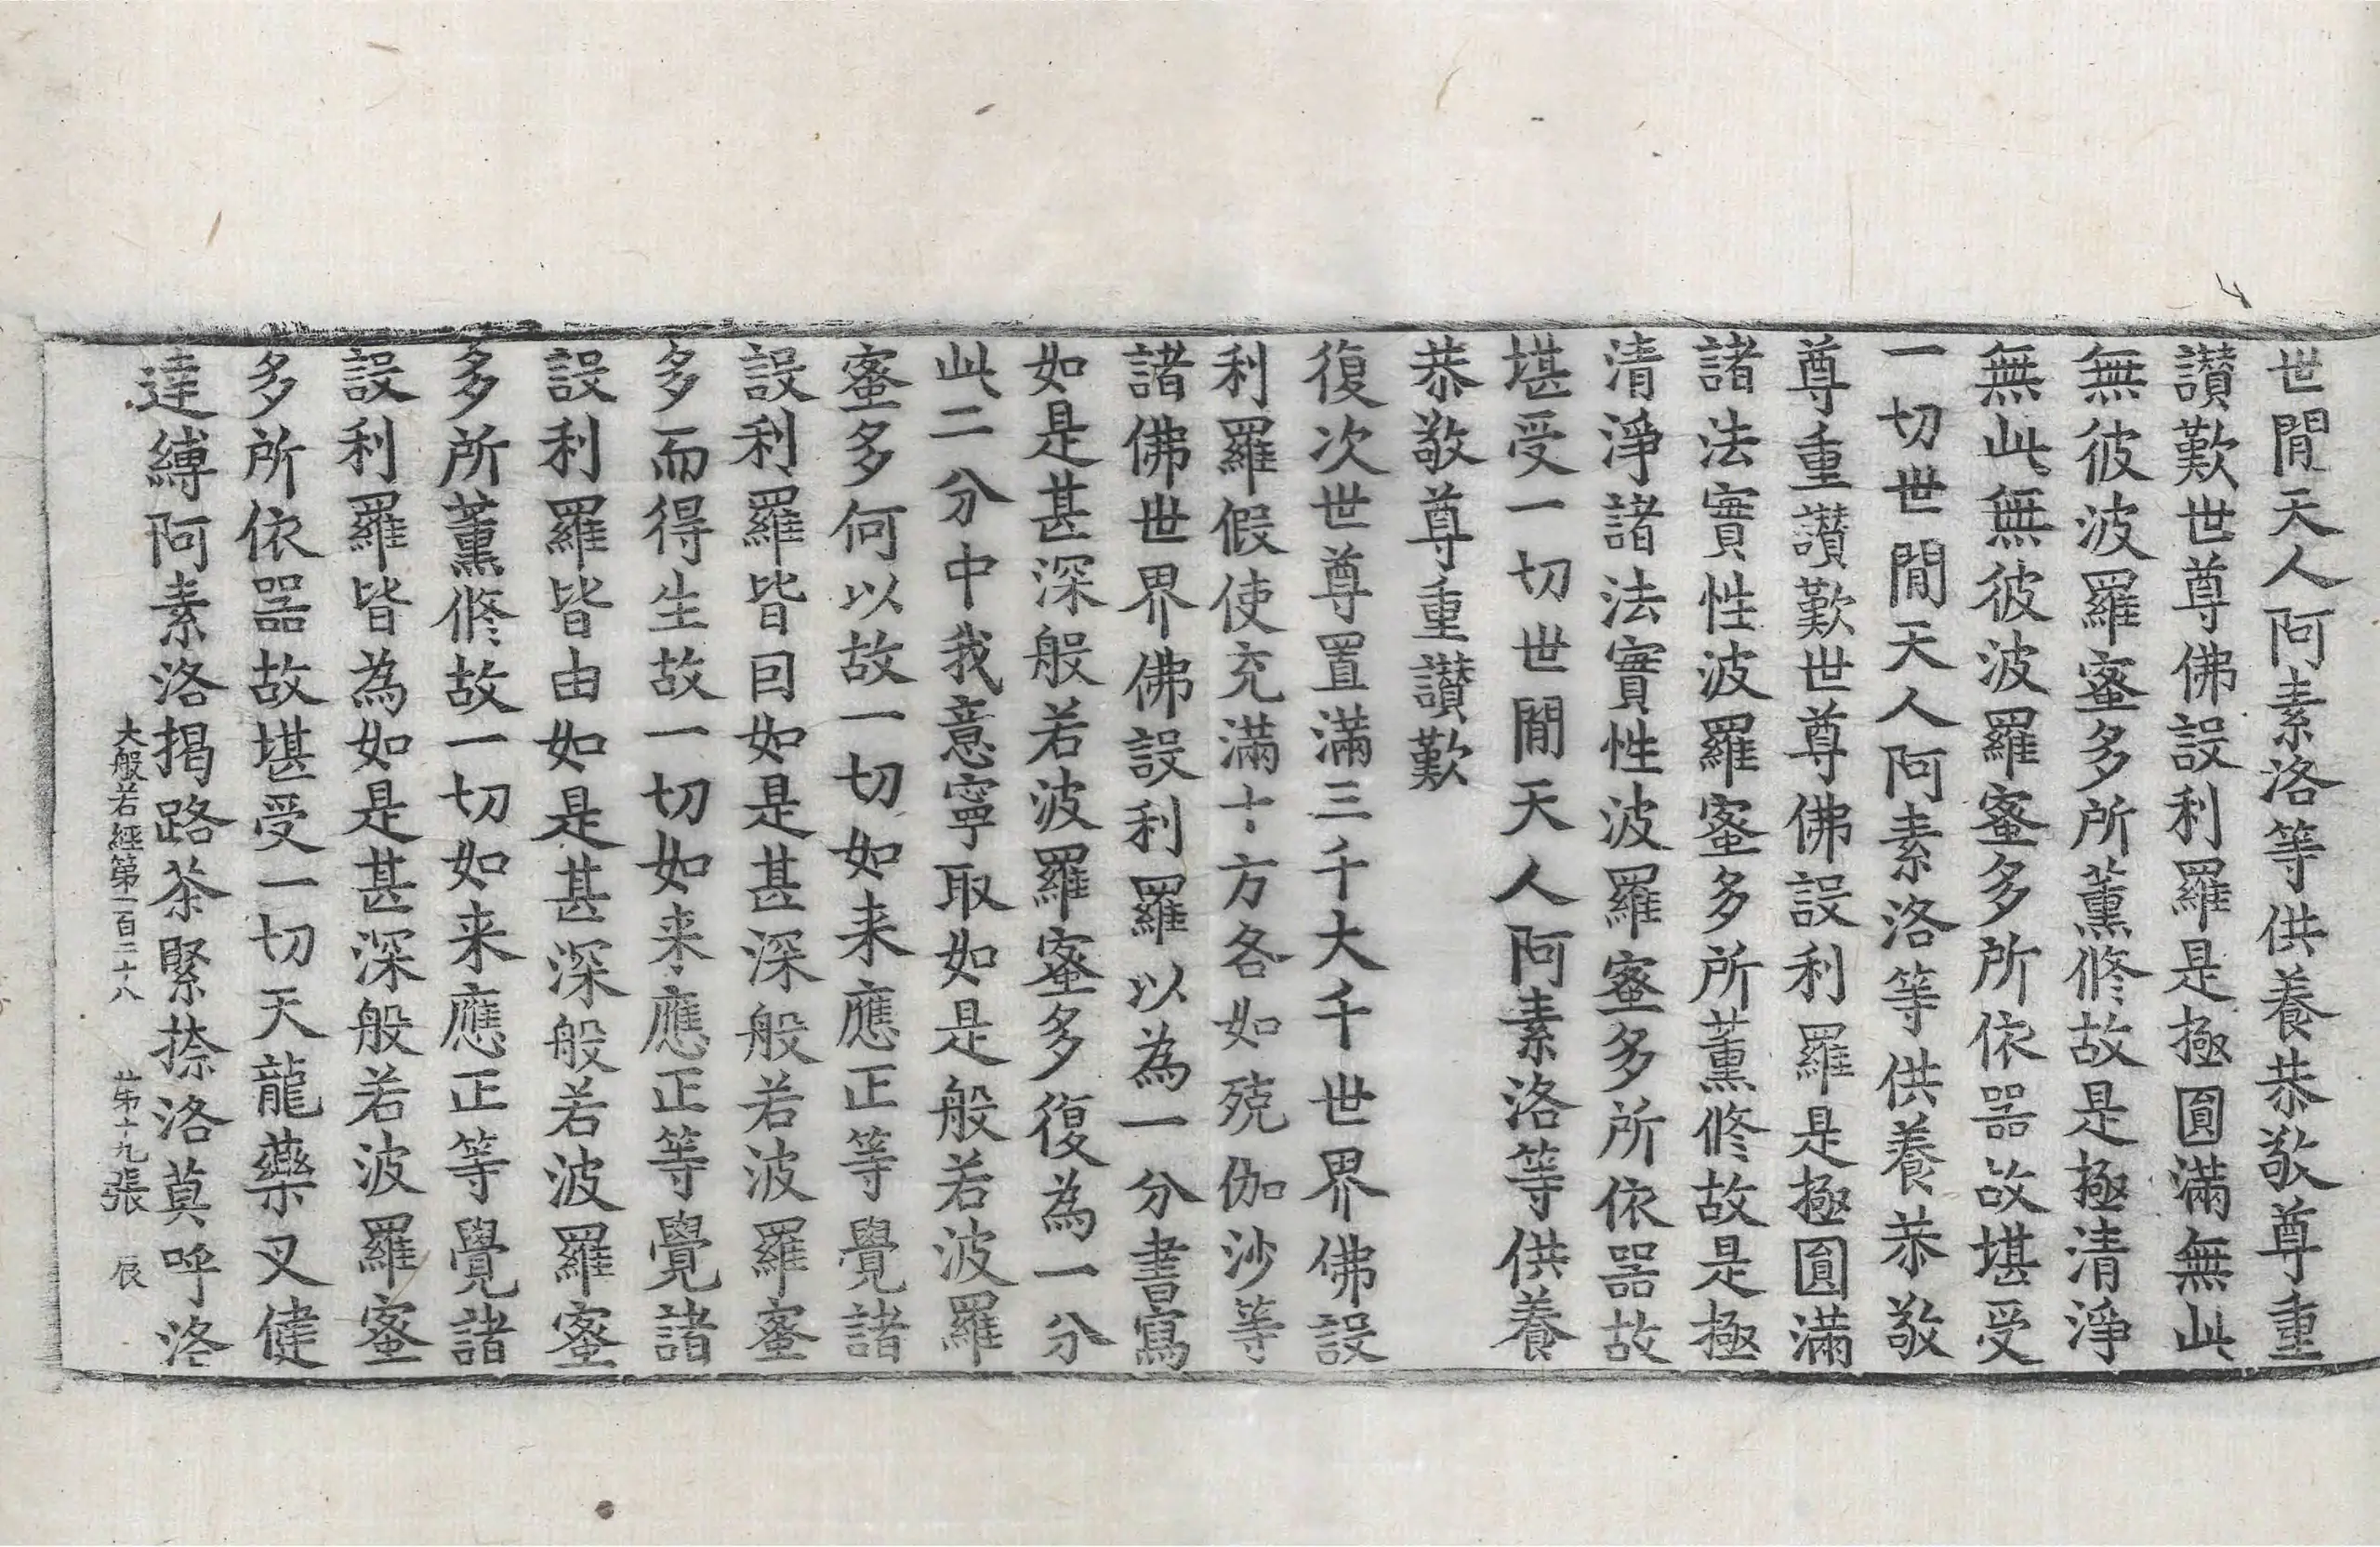 世閒天人阿素洛等供養恭敬尊重
讃歎世尊佛設利羅是極圓滿無此
無彼波羅蜜多所薰修故是極清淨
無此無彼波羅蜜多所依器故堪受
一切世閒天人阿素洛等供養恭敬
尊重讃歎世尊佛設利羅是極圓滿
諸法實性波羅蜜多所薰修故是極
清淨諸法實性波羅蜜多所依器故
堪受一切世閒天人阿素洛等供養
恭敬尊重讃歎
復次世尊置滿三千大千世界佛設
利羅假使充滿十方各如殑伽沙等
諸佛世界佛設利羅以為一分書寫
如是甚深般若波羅蜜多復為一分
此二分中我意寧取如是般若波羅
蜜多何以故一切如来應正等覺諸
設利羅皆因如是甚深般若波羅蜜
多而得生故一切如来應正等覺諸
設利羅皆由如是甚深般若波羅蜜
多所薰修故一切如来應正等覺諸
設利羅皆為如是甚深般若波羅蜜
多所依器故堪受一切天龍藥叉健
達縛阿素洛揭路荼緊捺洛莫呼洛
大般若經第一百二十八 第十九張 辰